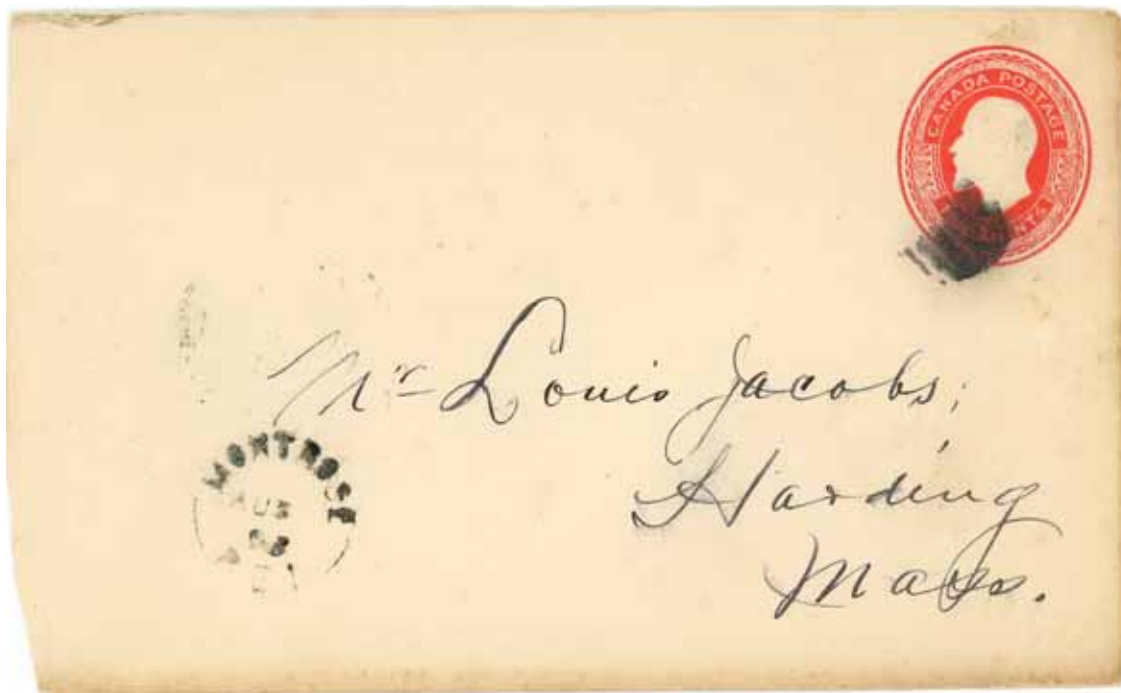 CANADA POSTAGE
Mr Louis Jacobs,
Harding
Mass.
MONTROSE
AU